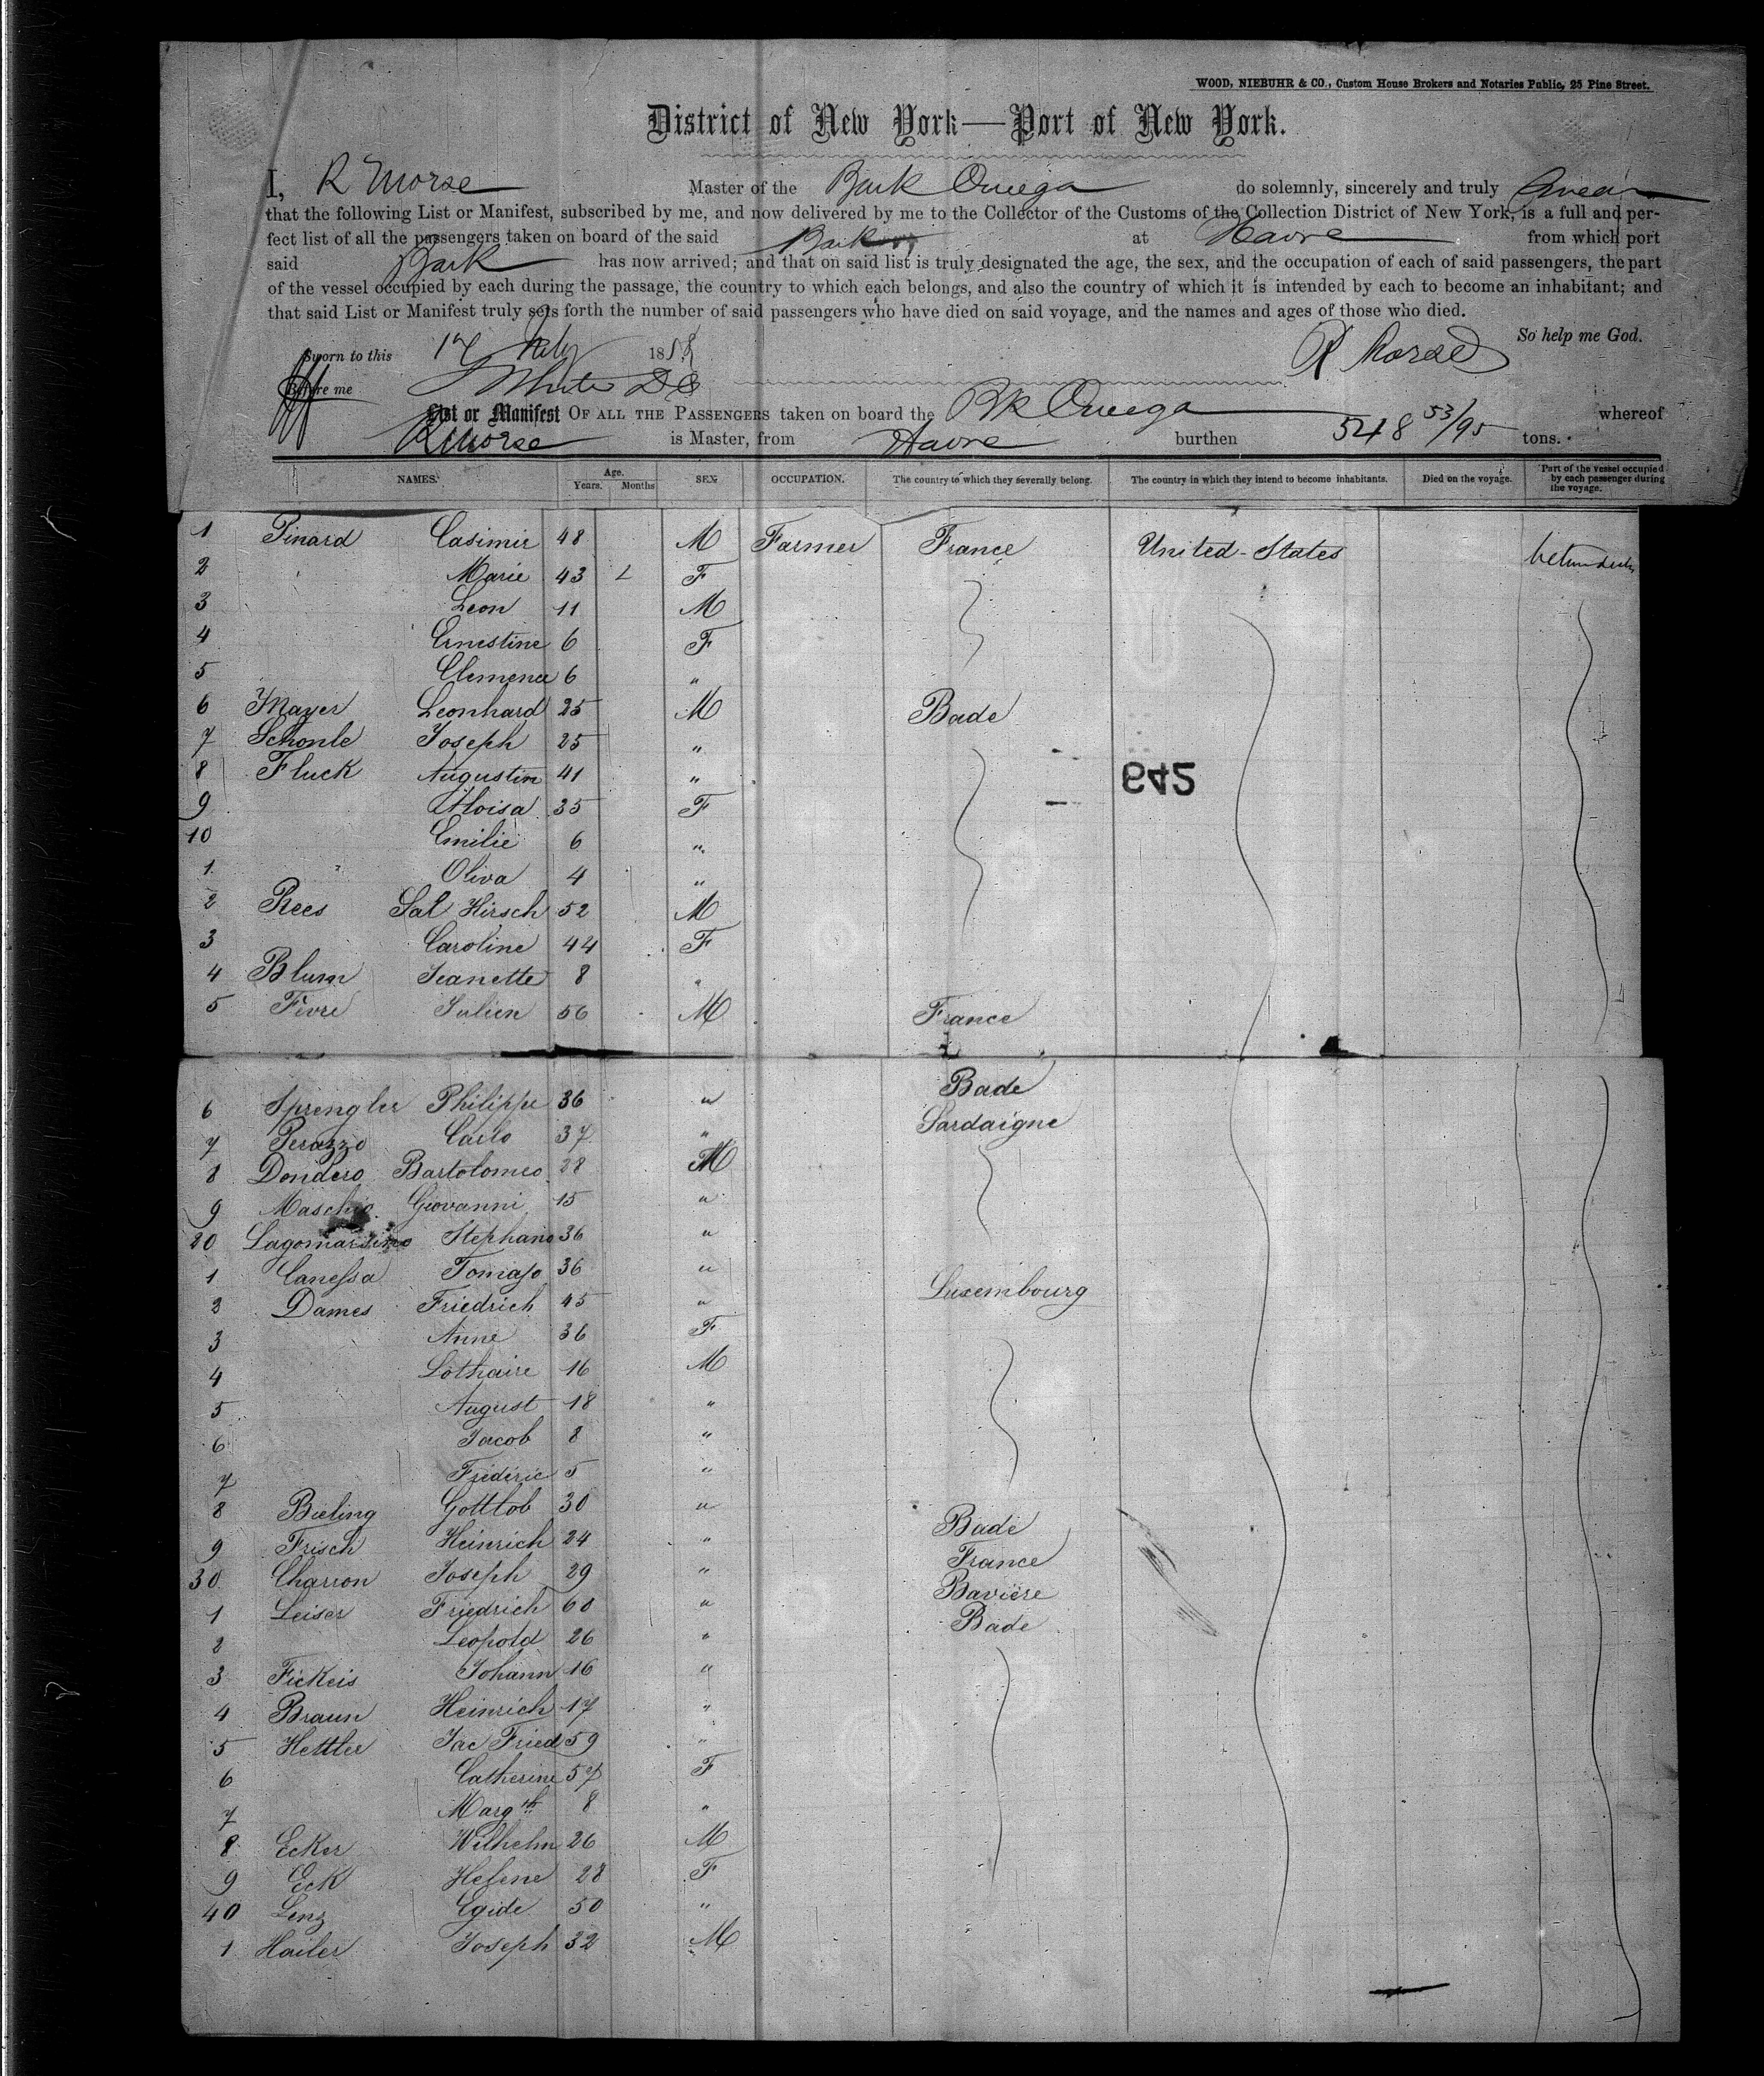 WOOD, NIEBUHR & CO., Custom House Brokers and Notaries Public, 25 Pine Street.
District of New York—Port of New York.
I, R Morse Master of the Bark Omega do solemnly, sincerely and truly Swear
that the following List or Manifest, subscribed by me, and now delivered by me to the Collector of the Customs of the Collection District of New York, is a full and per-
fect list of all the passengers taken on board of the said Bark at Havre from which port
said Bark has now arrived; and that on said list is truly designated the age, the sex, and the occupation of each of said passengers, the part
of the vessel occupied by each during the passage, the country to which each belongs, and also the country of which it is intended by each to become an inhabitant; and
that said List or Manifest truly sets forth the number of said passengers who have died on said voyage, and the names and ages of those who died.
So help me God.
Sworn to this 17 1858 R Morse
Before me White
List or Manifest OF ALL THE PASSENGERS taken on board the Bk Omega whereof
R Morse is Master, from Havre burthen 548 53/95 tons.
NAMES. Age. Years. Months SEX OCCUPATION. The country to which they severally belong. The country in which they intend to become inhabitants. Died on the voyage. Part of the vessel occupied by each passenger during the voyage.
1 Pinard Casimir 48 M Farmer France United-States
2 Marie 43 F
3 Leon 11 M
4 Ernestine 6 F
5 Clemence 6 "
6 Mayer Leonhard 25 M Bade
7 Schonle Joseph 25 "
8 Fluck Augustin 41 "
942
9 Aloisa 35 F
10 Emilie 6 "
1 Oliva 4 "
2 Rees Sal Hirsch 52 M
3 Caroline 44 F
4 Blum Jeanette 8 "
5 Fevre Julien 56 M France
6 Sprengler Philippe 36 " Bade
7 Perazzo Carlo 37 " Sardaigne
8 Dondero Bartolomeo 28 M
9 Maschio Giovanni 15 "
20 Lagomarsino Stephano 36 "
1 Canessa Tomaso 36 "
2 Dames Friedrich 45 " Luxembourg
3 Anne 36 F
4 Lothaire 16 M
5 August 18 "
6 Jacob 8 "
7 Frideric 5 "
8 Bieling Gottlob 30 " Bade
9 Frisch Heinrich 24 " France
30 Charron Joseph 29 " Baviere
1 Leiser Friedrich 60 " Bade
2 Leopold 26 "
3 Fickeis Johann 16 "
4 Braun Heinrich 17 "
5 Hettler Jac Fried 59 "
6 Catherine 57 F
7 Margth 8 "
8 Ecker Wilhelm 26 M
9 Eck Helene 28 F
40 Lenz Egide 50 "
1 Hailer Joseph 32 M